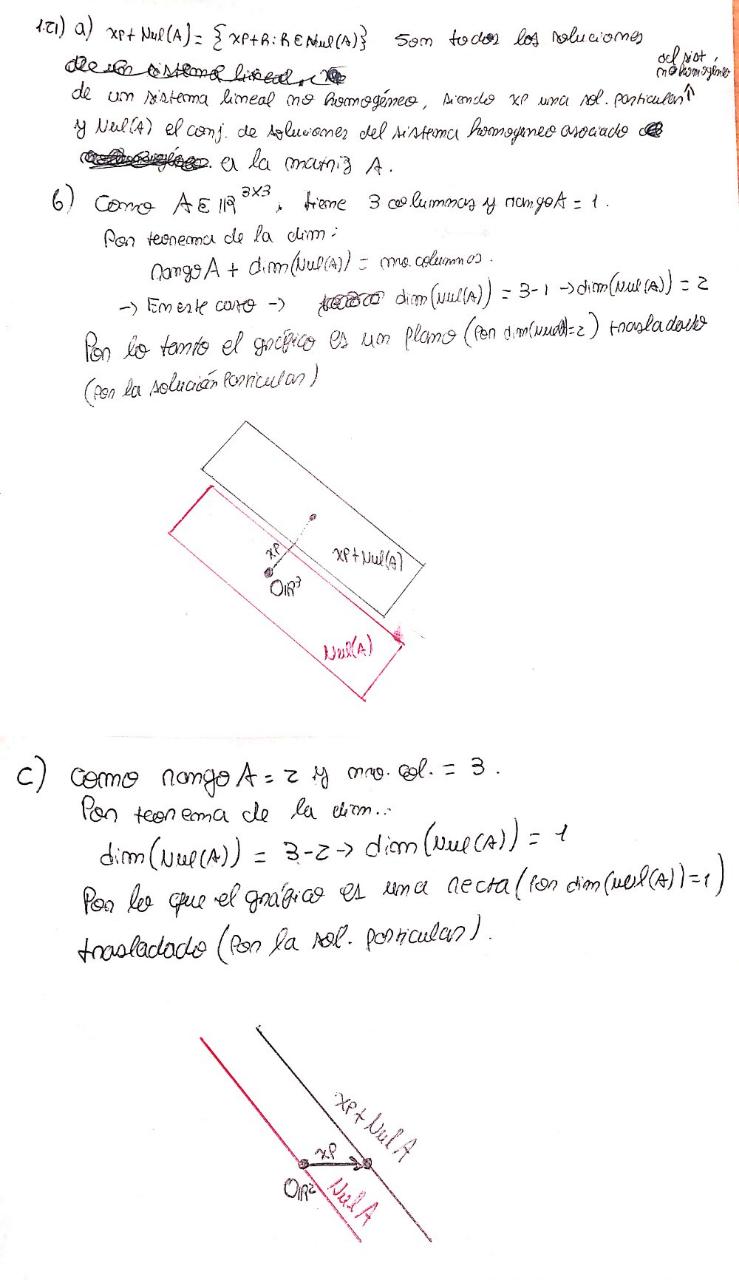 1.21) a) xp + Nul(A) = { xp+h : h ∈ Nul(A)} Son todas las soluciones
de un sistema lineal no homogéneo, siendo xp una sol. particular ↑ del sist. no homogéneo
y Nul(A) el conj. de soluciones del sistema homogeneo asociado
a la matriz A.
b) Como A ∈ IR 3x3, tiene 3 columnas y rango A = 1.
Por teorema de la dim:
rango A + dim(Nul(A)) = nro. columnas.
→ En este caso → dim(Nul(A)) = 3-1 → dim(Nul(A)) = 2
Por lo tanto el gráfico es un plano (por dim(Nul(A))=2) trasladado
(por la solución particular)
xp
xp+Nul(A)
OIR³
Nul(A)
c) Como rango A = 2 y nro. col. = 3.
Por teorema de la dim..
dim(Nul(A)) = 3-2 → dim(Nul(A)) = 1
Por lo que el gráfico es una recta (por dim(Nul(A))=1)
trasladado (por la sol. particular).
xp + Nul A
xp
OIR²
Nul A